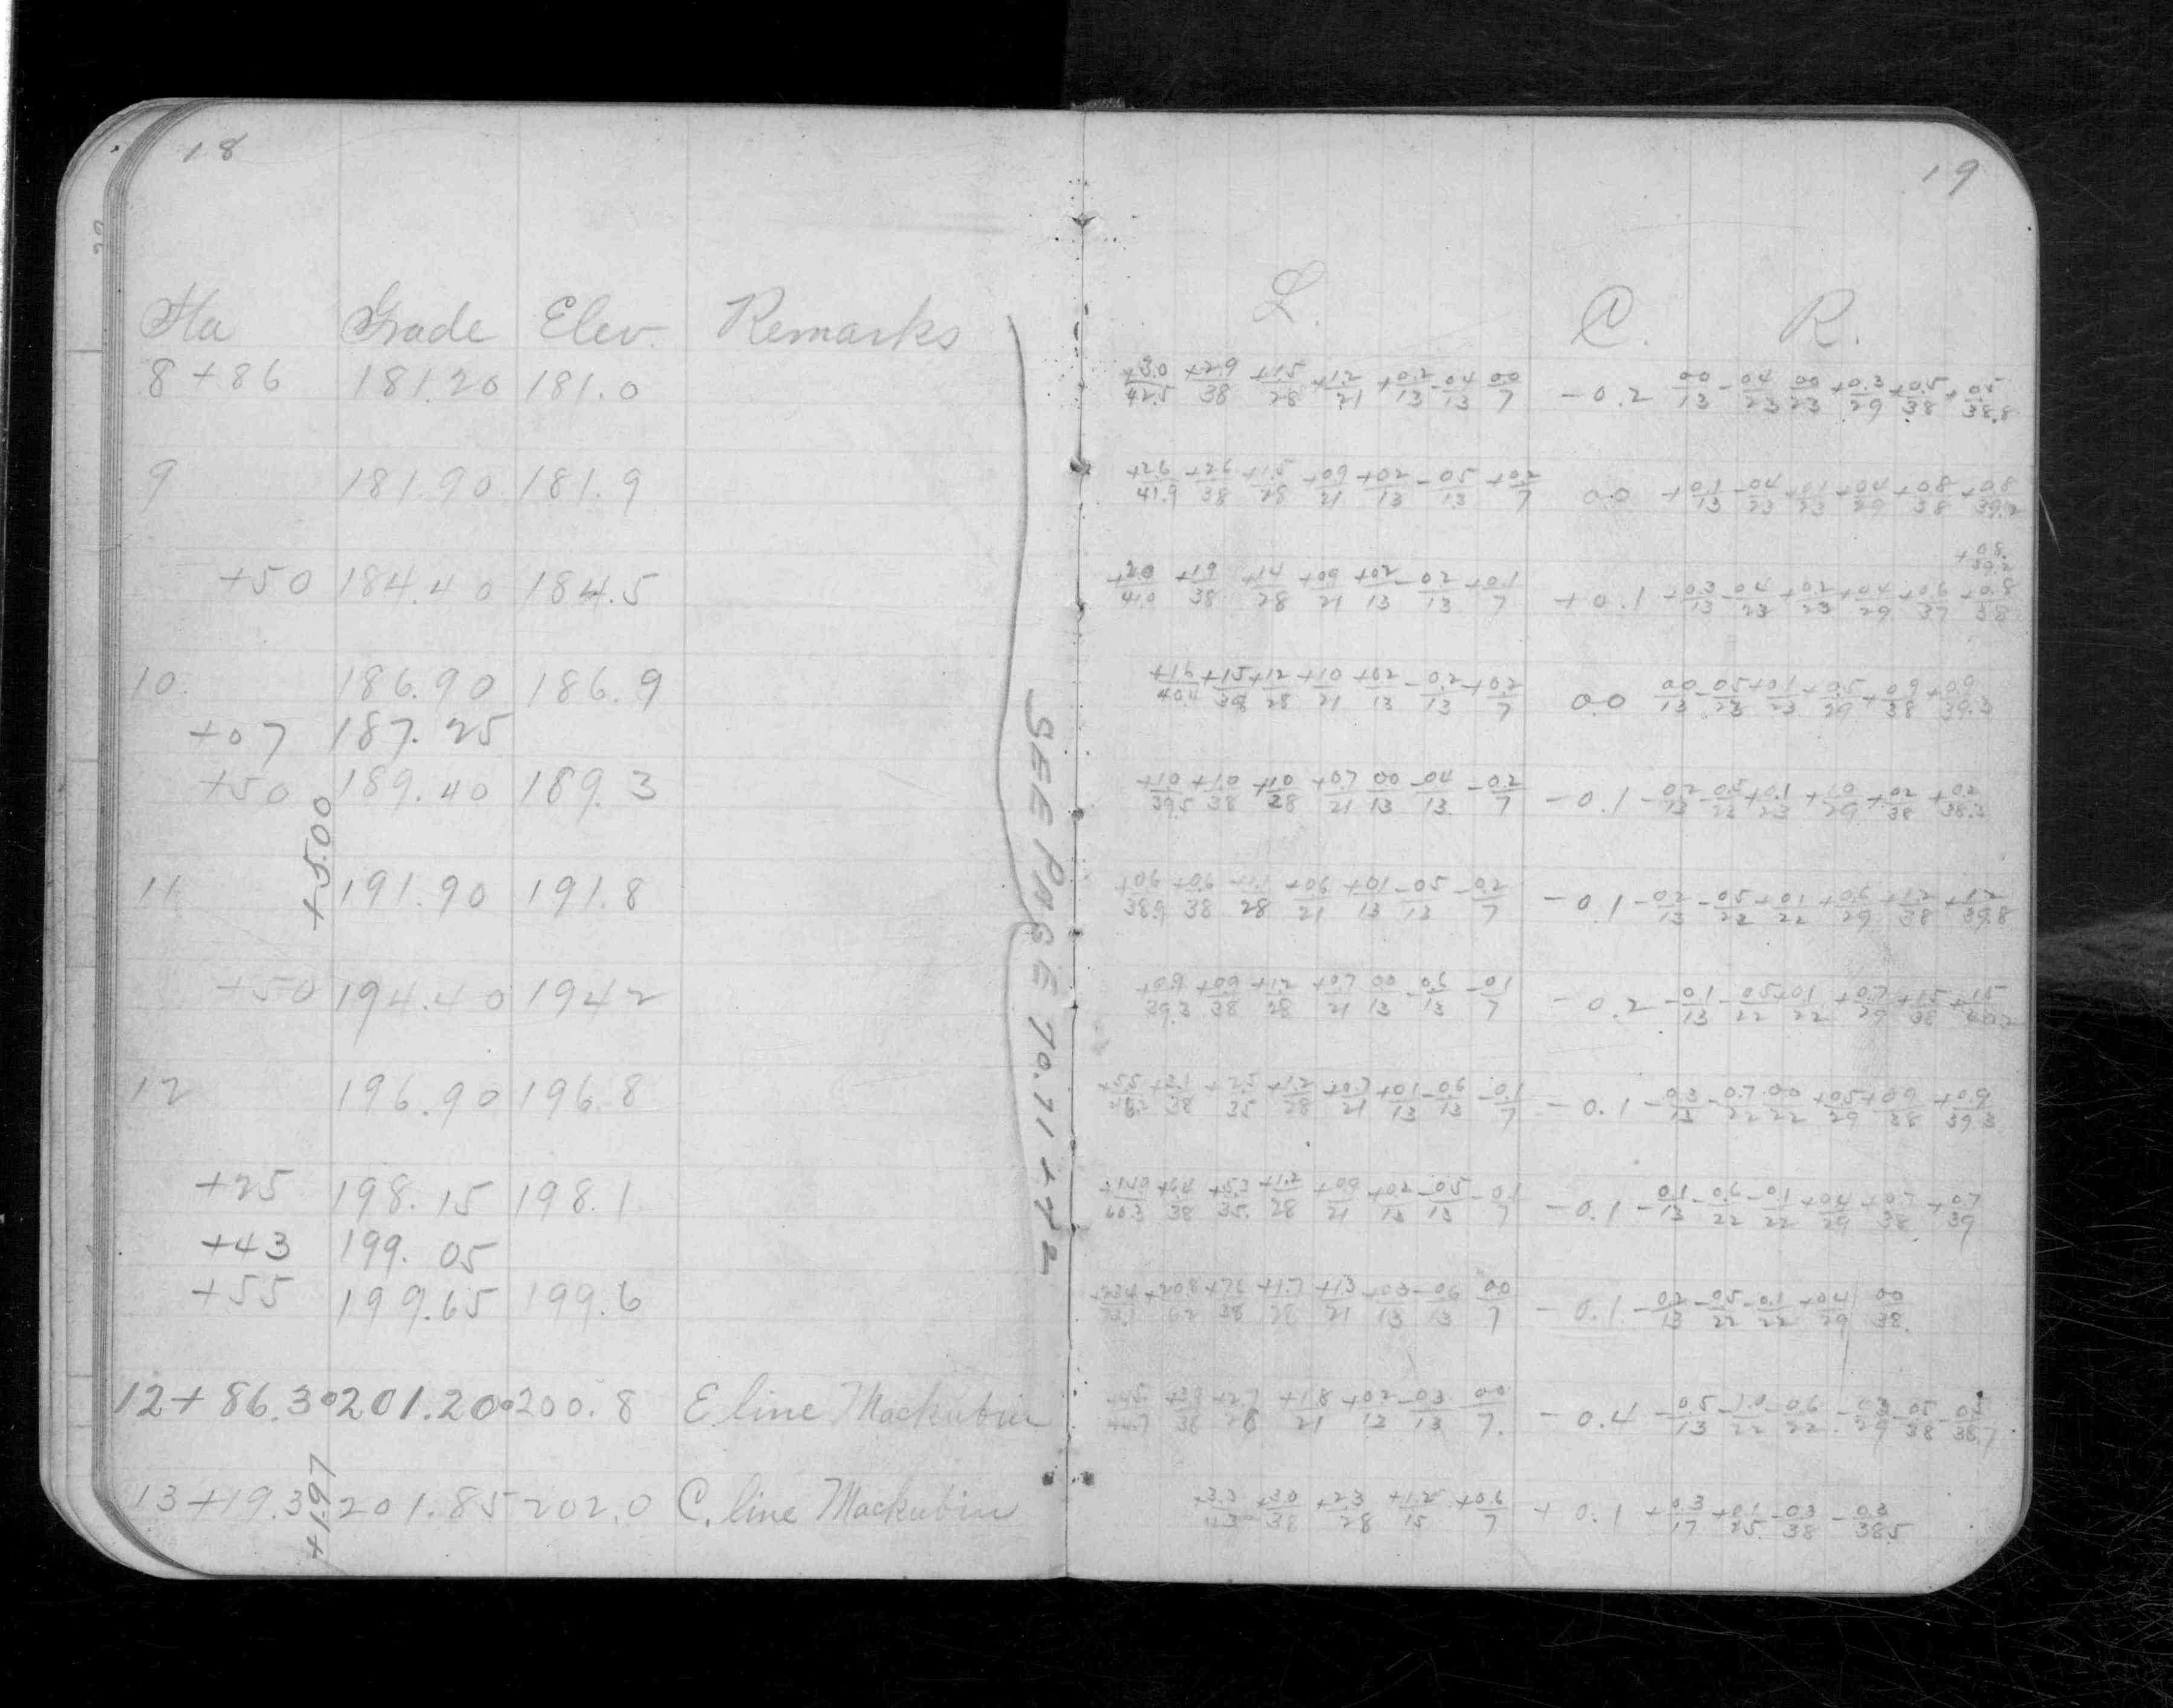 18
Sta Grade Elev. Remarks
8+86 181.20 181.0
9 181.90 181.9
+50 184.40 184.5
10 186.90 186.9
+07 187.25
+50 189.40 189.3
+5.00
11 191.90 191.8
+50 194.40 194.2
12 196.90 196.8
+25 198.15 198.1
+43 199.05
+55 199.65 199.6
12+86.30 201.20 200.8 E line Mackubin
+1.97
13+19.3 201.85 202.0 C. line Mackubin
SEE PAGE 70.71+72
19
L. C. R.
+3.0/42.5 +2.9/38 +1.5/28 +1.2/21 +0.2/13 -0.4/13 0.0/7 -0.2 0.0/13 -0.4/23 0.0/23 +0.3/29 +0.5/38 +0.5/38.8
+2.6/41.9 +2.6/38 +1.5/28 +0.9/21 +0.2/13 -0.5/13 +0.2/7 0.0 +0.1/13 -0.4/23 +0.1/23 +0.4/29 +0.8/38 +0.8/39.2
+0.8/39.2
+2.0/41.0 +1.9/38 +1.4/28 +0.9/21 +0.2/13 -0.2/13 +0.1/7 +0.1 +0.3/13 -0.4/23 +0.2/23 +0.4/29 +0.6/37 +0.8/38
+1.6/40.4 +1.5/38 +1.2/28 +1.0/21 +0.2/13 -0.2/13 +0.2/7 0.0 0.0/13 -0.5/23 +0.1/23 +0.5/29 +0.9/38 +0.9/39.3
+1.0/39.5 +1.0/38 +1.0/28 +0.7/21 0.0/13 -0.4/13 -0.2/7 -0.1 -0.2/13 -0.5/23 +0.1/23 +0.2/38 +0.2/38.3
+0.6/38.9 +0.6/38 +1.1/28 +0.6/21 +0.1/13 -0.5/13 -0.2/7 -0.1 -0.2/13 -0.5/22 +0.1/22 +0.6/29 +1.2/38 +1.2/39.8
+0.9/39.3 +0.9/38 +1.2/28 +0.7/21 0.0/13 -0.6/13 -0.1/7 -0.2 -0.1/13 -0.5/22 +0.1/22 +0.7/29 +1.5/38 +1.5/40.2
+1.2/28 +0.7/21 +0.1/13 -0.6/13 -0.1/7 -0.1 -0.3/13 -0.7/22 0.0/22 +0.5/29 +0.9/38 +0.9/39.3
+6.4/38 +5.3/35 +1.2/28 +0.9/21 +0.2/13 -0.5/13 -0.1/7 -0.1 -0.1/13 -0.6/22 -0.1/22 +0.4/29 +0.7/38 +0.7/39
+20.8/62 +7.6/38 +1.7/28 +1.3/21 +0.3/13 -0.6/13 0.0/7 -0.1 -0.2/13 -0.5/22 -0.1/22 +0.4/29 0.0/38
+2.7/28 +1.8/21 +0.2/13 -0.3/13 0.0/7 -0.4 -0.5/13 -1.0/22 -0.6/22 -0.3/29 -0.5/38 -0.5/38.7
+3.0/38 +2.3/28 +1.2/15 +0.6/7 +0.1 +0.3/17 +0.1/25 -0.3/38 -0.3/38.5